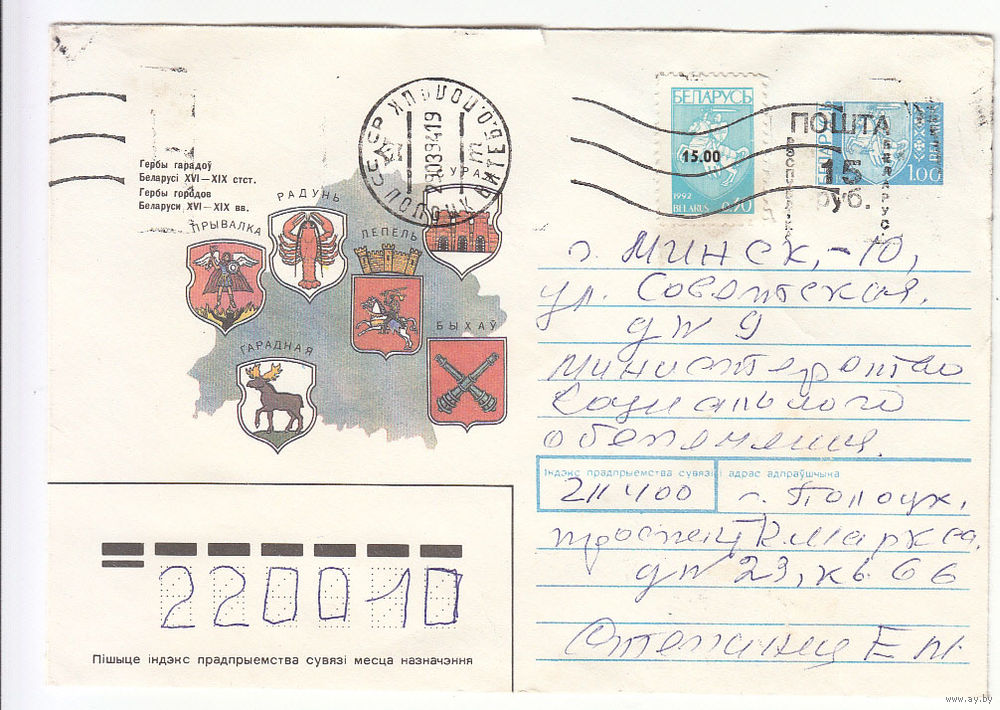 Гербы гарадоў
Беларусі XVI—XIX стст.
Гербы городов
Беларуси XVI—XIX вв.
ПРЫВАЛКА
РАДУНЬ
ЛЕПЕЛЬ
ГАРАДНАЯ
БЫХАЎ
БЕЛАРУСЬ
15.00
1992
BELARUS
ПОШТА
15
руб.
БЕЛАРУСЬ
1.00
г. Минск, -10,
ул. Советская,
д № 9
Министерство
Социального
обеспечения.
Індэкс прадпрыемства сувязі і адрас адпраўшчыка
211400 г. Полоцк,
проспект К. Маркса,
д № 23, кв. 66
220010
Пішыце індэкс прадпрыемства сувязі месца назначэння
www.ay.by